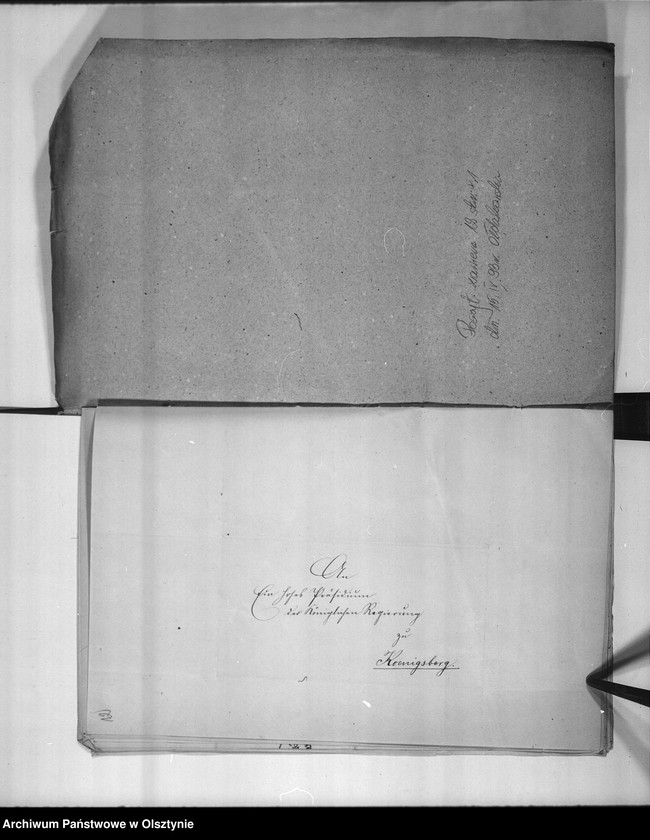 dn. 16.IV.98r.
An
Ein hohes Präsidium
der Königlichen Regierung
zu
Koenigsberg.
12
Archiwum Państwowe w Olsztynie